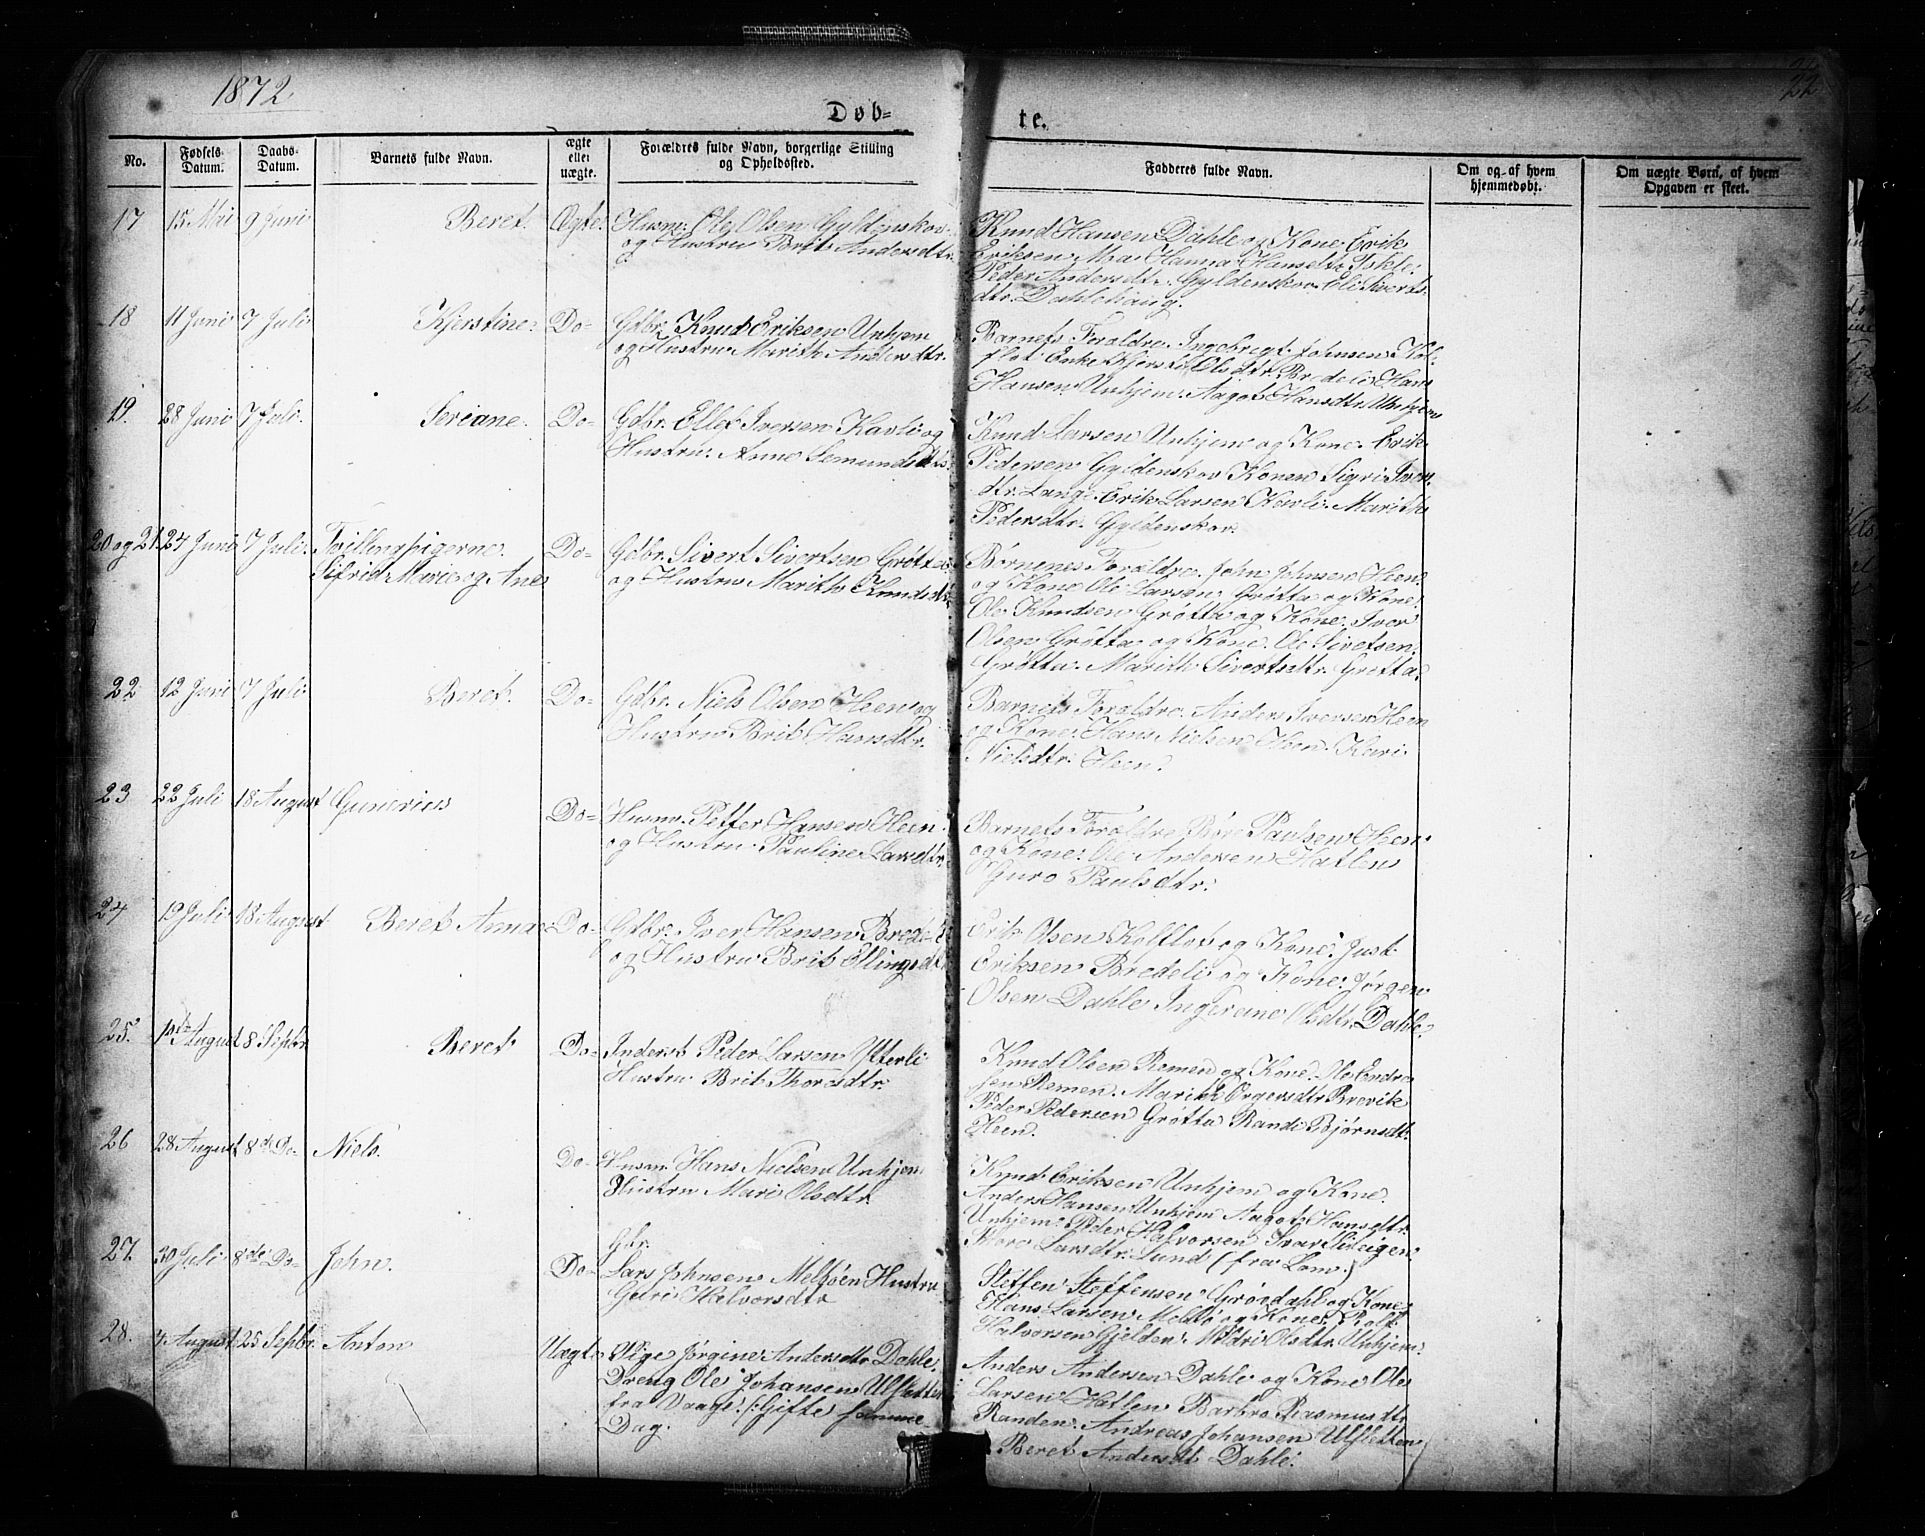 1872
22
Døb-
te.
No.
Fødsels-
Datum.
Daabs-
Datum.
Barnets fulde Navn.
ægte
eller
uægte.
Forældres fulde Navn, borgerlige Stilling
og Opholdssted.
Fadderes fulde Navn.
Om og af hvem
hjemmedøbt.
Om uægte Børn, af hvem
Opgaven er skeet.
17 15 Mai 9 Juni Beret. Ægte. Husm: Ole Olsen Gyldenskov
og Hustru Brit Andersdtr.
Knud Hansen Dahle og Kone. Erik
Eriksen Hanna Hansdtr
Peder Andersdtr. Gyldenskov. Eli Siverts
dtr. Dahlehaug.
18 11 Juni 7 Juli Kjerstine. Do- Gdbr. Knud Eriksen Unhjem
og Hustru Marith Andersdtr.
Barnets Forældre. Ingebrigt Johnsen Kol-
flot Enke Kjersti Olsdtr. Bredeli Hans
Hansen Unhjem. Aagot Hansdtr. Unhjem
19. 28 Juni 7 Juli. Seriane. Do- Gdbr. Ellef Iversen Kavli og
Hustru: Anne Semundsdtr.
Knud Larsen Unhjem og Kone. Erik
Pedersen Gyldenskov Konen Sigri Iver
dtr. Lang. Erik Larsen Kavli. Marith
Pedersdtr. Gyldenskov.
20 og 21. 24 Juni 7 Juli. Tvillingpigerne.
Sifrid Marie og Ane
Do- Gdbr. Sivert Sivertsen Grøtta
og Hustru Marith Knudsdtr.
Børnenes Forældre. John Johnsen Heen
og Kone Ole Larsen Grøtta og Kone.
Ole Knudsen Grøtta og Kone. Iver
Olsen Grøtta og Kone. Ole Sivetsen.
Grøtta. Marith Sivertsdtr. Grøtta.
22 12 Juni 7 Juli Beret. Do- Gdbr. Niels Olsen Heen og
Hustru Brit Hansdtr.
Barnets Forældre. Anders Iversen Heen
og Kone. Hans Nielsen Heen. Kari
Nielsdtr. Heen.
23 22 Juli 18 August Gunerius Do- Husm. Petter Hansen Heen.
og Hustru Pauline Larsdtr.
Barnets Forældre Paulsen Heen
og Kone: Ole Andersen Hatlen
Guro Paulsdtr.
24 19 Juli 18 August Beret Anna Do- Gdbr. Iver Hansen Bredeli
og Hustru Brit Ellingsdtr.
Erik Olsen Kolflot og Kone. Just
Eriksen Bredeli og Kone. Jørgen
Olsen Dahle Ingerane Olsdtr. Dahle.
25. August 8 Septbr Beret Do- Inderst Peder Larsen Ytterli
Hustru Brit Thoresdtr.
Knud Olsen Remen og Kone. Ole Endre
sen Remen. Marith Brevik
Peder Pedersen Grøtta Randi Bjørnsdt.
Heen.
26 28 August 8de Do- Niels. Do- Husm. Hans Nielsen Unhjem
Hustru Mari Olsdtr.
Knud Eriksen Unhjem og Kone.
Anders Hansen Unhjem Aagot Hansdtr.
Unhjem Peder Halvorsen
Larsdtr. Lund (fra Lom.)
27. 30 Juli 8de Do- John. Do- Gbr.
Lars Johnsen Melsøen Hustru
Gutri Halvorsdtr
Steffen Steffensen Grøvdahl og Kone
Hans Larsen og Kone. Rolf
Halvorsen Gjelden. Olsdtr. Unhjem.
28. 4 August 25 Septbr. Anton Uægte Pige Jørgine Andersdtr. Dahle.
Dreng Ole Johansen Ulsletten
fra Vaage. /: Gifte samme
Dag.
Anders Andersen Dahle og Kone Ole
Larsen Hatlen Barbro Rasmusdtr
Randen. Andreas Johansen Ulsletten
Beret Andersdt Dahle.